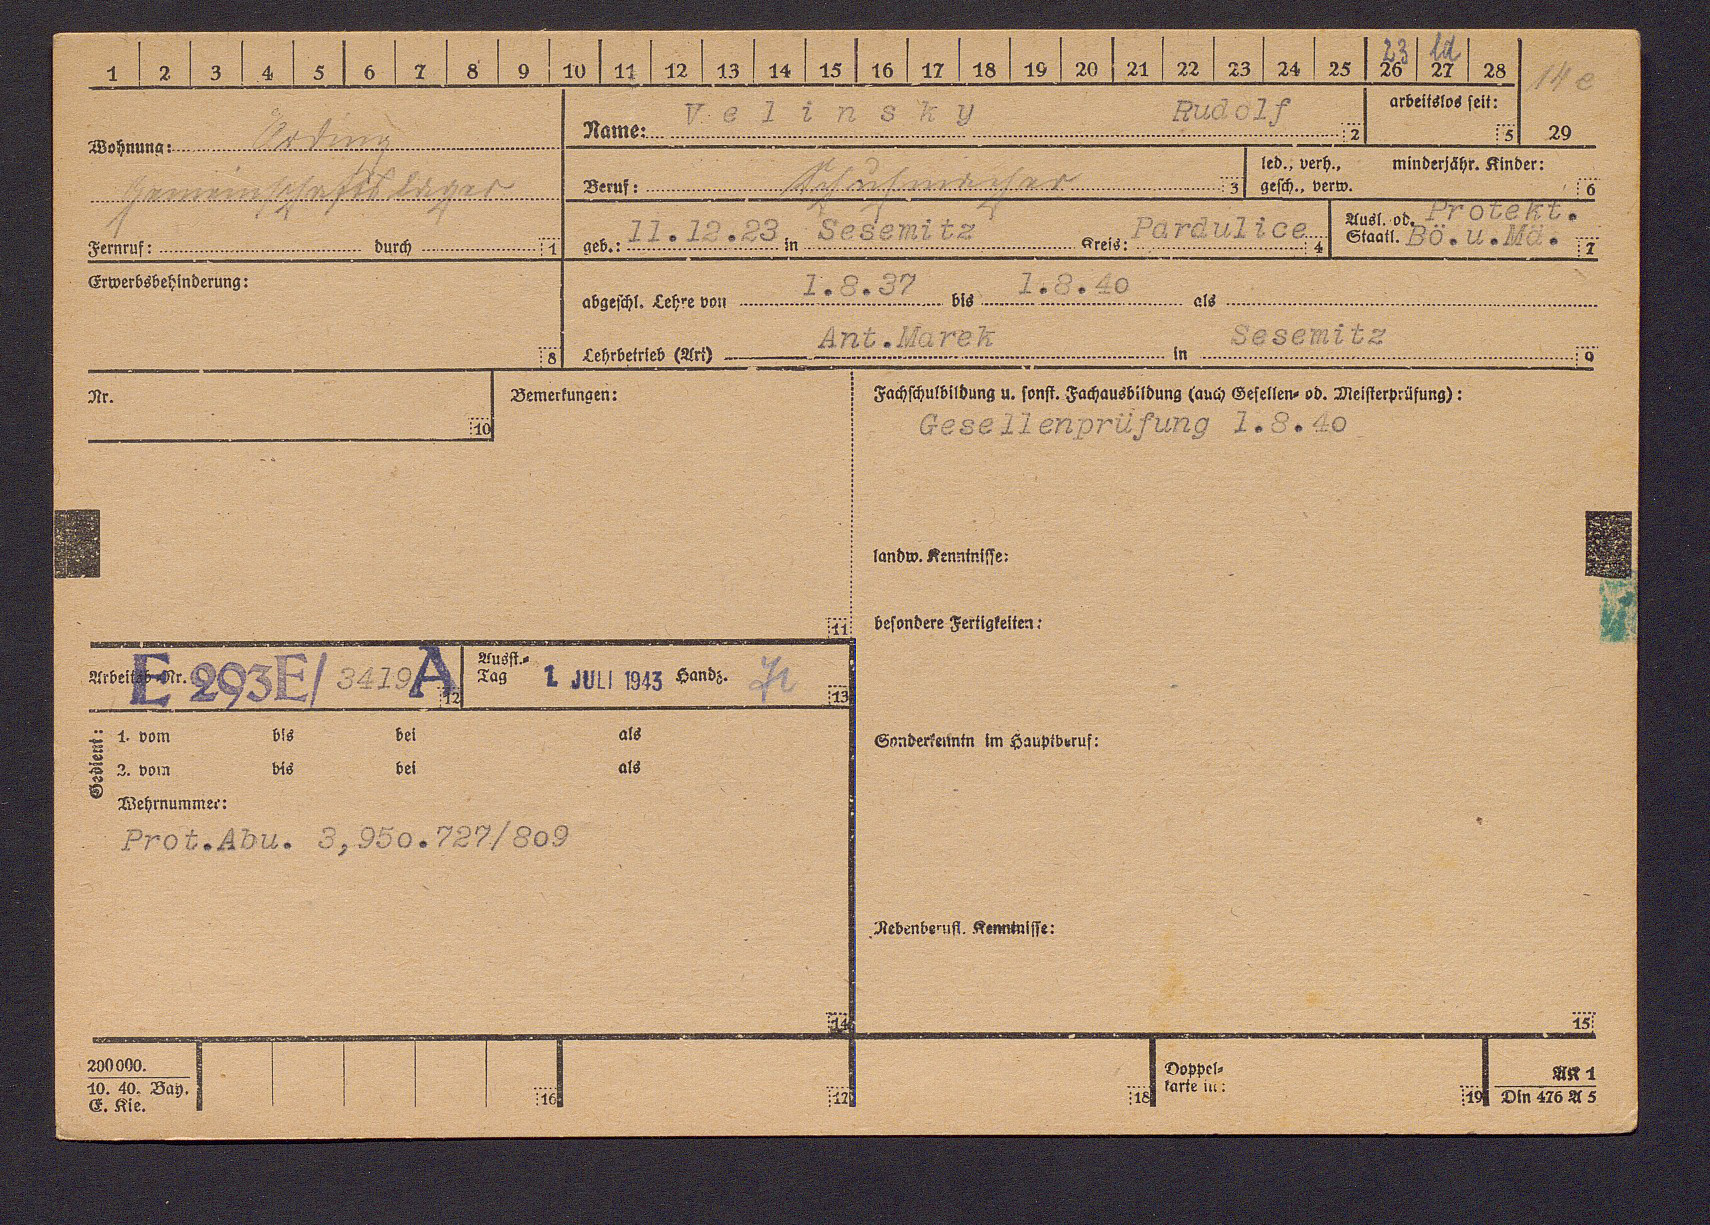 1 2 3 4 5 6 7 8 9 10 11 12 13 14 15 16 17 18 19 20 21 22 23 24 25 26 27 28
23 ld
14 e
29
Wohnung:
Gemeinschaftslager
Fernruf: durch 1
Name: Velinsky Rudolf 2
arbeitslos seit: 5
Beruf: Schuhmacher 3
led., verh., minderjähr. Kinder:
gesch., verw. 6
geb.: 11.12.23 in Sesemitz Kreis: Pardulice 4
Ausl. od. Protekt.
Staatl. Bö.u.Mä. 7
Erwerbsbehinderung:
8
abgeschl. Lehre von 1.8.37 bis 1.8.40 als
Lehrbetrieb (Art) Ant.Marek in Sesemitz 9
Nr.
10
Bemerkungen:
11
Fachschulbildung u. sonst. Fachausbildung (auch Gesellen- od. Meisterprüfung):
Gesellenprüfung 1.8.40
landw. Kenntnisse:
besondere Fertigkeiten:
Sonderkenntn im Hauptberuf:
Nebenberufl. Kenntnisse:
15
Arbeitsb.-Nr. E 293E/ 3419 A 12
Ausst.-
Tag 1. JULI 1943 Handz. 13
Gedient:
1. vom bis bei als
2. vom bis bei als
Wehrnummer:
Prot.Abu. 3,950.727/809
14
200000.
10. 40. Bay.
E. Kie.
16 17 18
Doppel-
karte in: 19
AK 1
Din 476 A 5